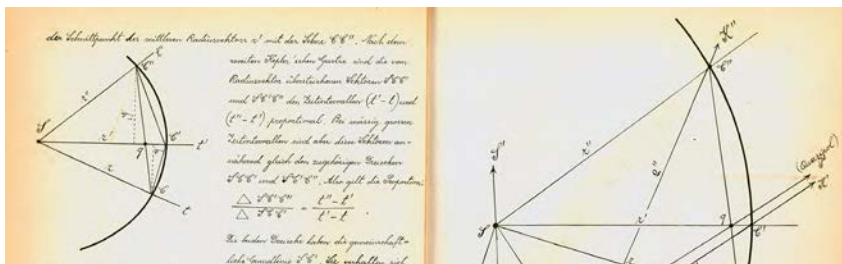 der Schnittpunkt des mittleren Radiusvektors r' mit der Sehne CC". Nach dem
zweiten Kepler'schen Gesetze sind die vom
Radiusvektor überstrichenen Sektoren SCC'
und SC'C" den Zeitintervallen (t' - t) und
(t" - t') proportional. Bei mässig grossen
Zeitintervallen sind aber diese Sektoren an-
nähernd gleich den zugehörigen Dreiecken
SCC' und SC'C". Also gilt die Proportion:
△ SC'C" / △ SCC' = t" - t' / t' - t .
Die beiden Dreiecke haben die gemeinschaft-
liche Grundlinie SC'. Sie verhalten sich
C"
r"
S
r'
q
C'
t'
r
C
t
K"
C"
S'
r"
ρ"
(Quasiziel)
K'
S
r'
q
C'